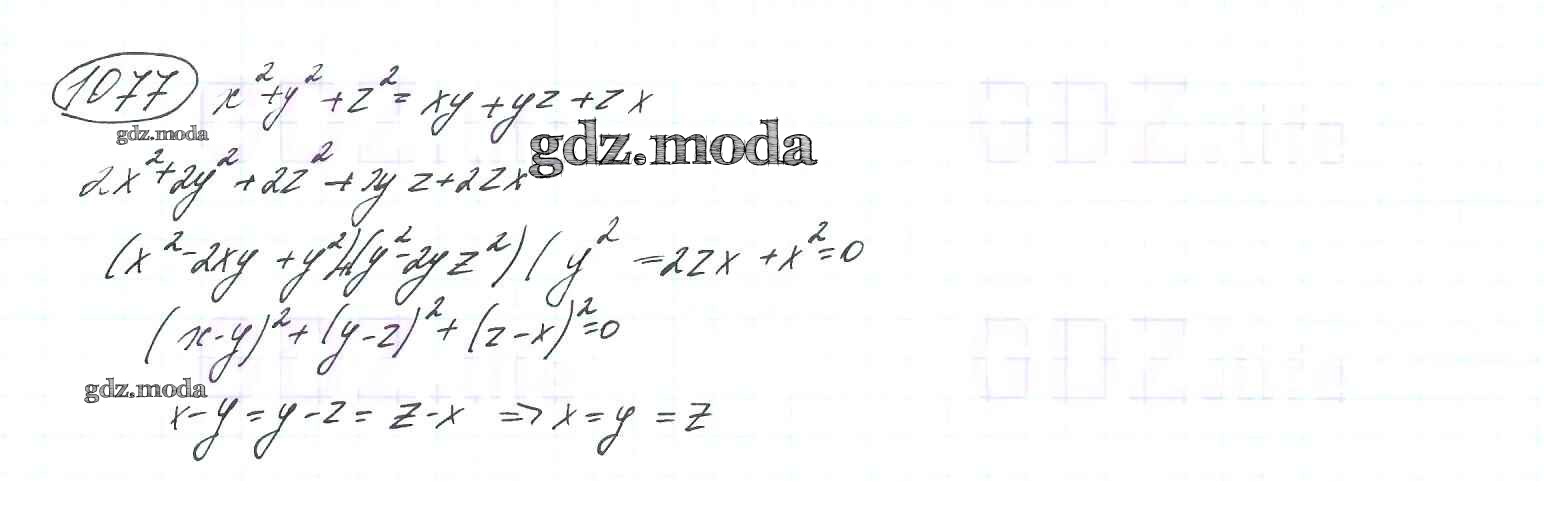 1077 x² + y² + z² = xy + yz + zx
gdz.moda
gdz.moda
2x² + 2y² + 2z² + 2yz + 2zx
(x² - 2xy + y²)+(y² - 2yz²)(y² = 2zx + x² = 0
(x - y)² + (y - z)² + (z - x)² = 0
gdz.moda
x - y = y - z = z - x => x = y = z